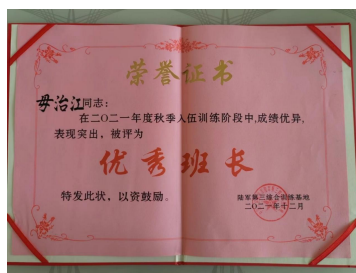 荣誉证书
毋治江同志:
在二〇二一年度秋季入伍训练阶段中,成绩优异,
表现突出,被评为
优秀班长
特发此状,以资鼓励。
陆军第三综合训练基地
二〇二一年十二月